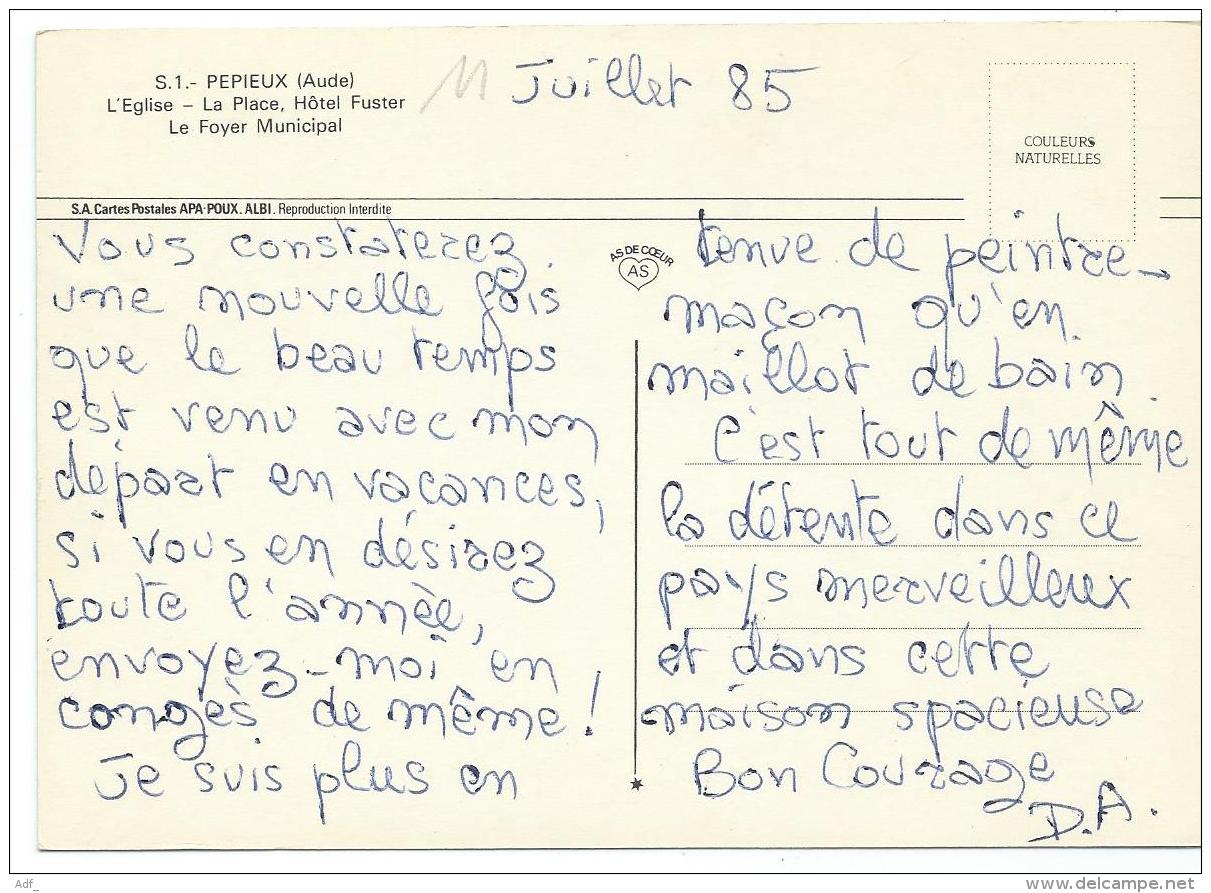 S.1.- PEPIEUX (Aude)
L'Eglise – La Place, Hôtel Fuster
Le Foyer Municipal
11 Juillet 85
COULEURS
NATURELLES
S.A. Cartes Postales APA-POUX. ALBI. Reproduction Interdite
AS DE CŒUR
AS
Vous constaterez
une nouvelle fois
que le beau temps
est venu avec mon
départ en vacances,
si vous en désirez
toute l'année,
envoyez-moi en
congés de même !
Je suis plus en
tenue de peintre-
maçon qu'en
maillot de bain.
C'est tout de même
la détente dans ce
pays merveilleux
et dans cette
maison spacieuse
Bon Courage
D.A.
Adf_
delcampe.net